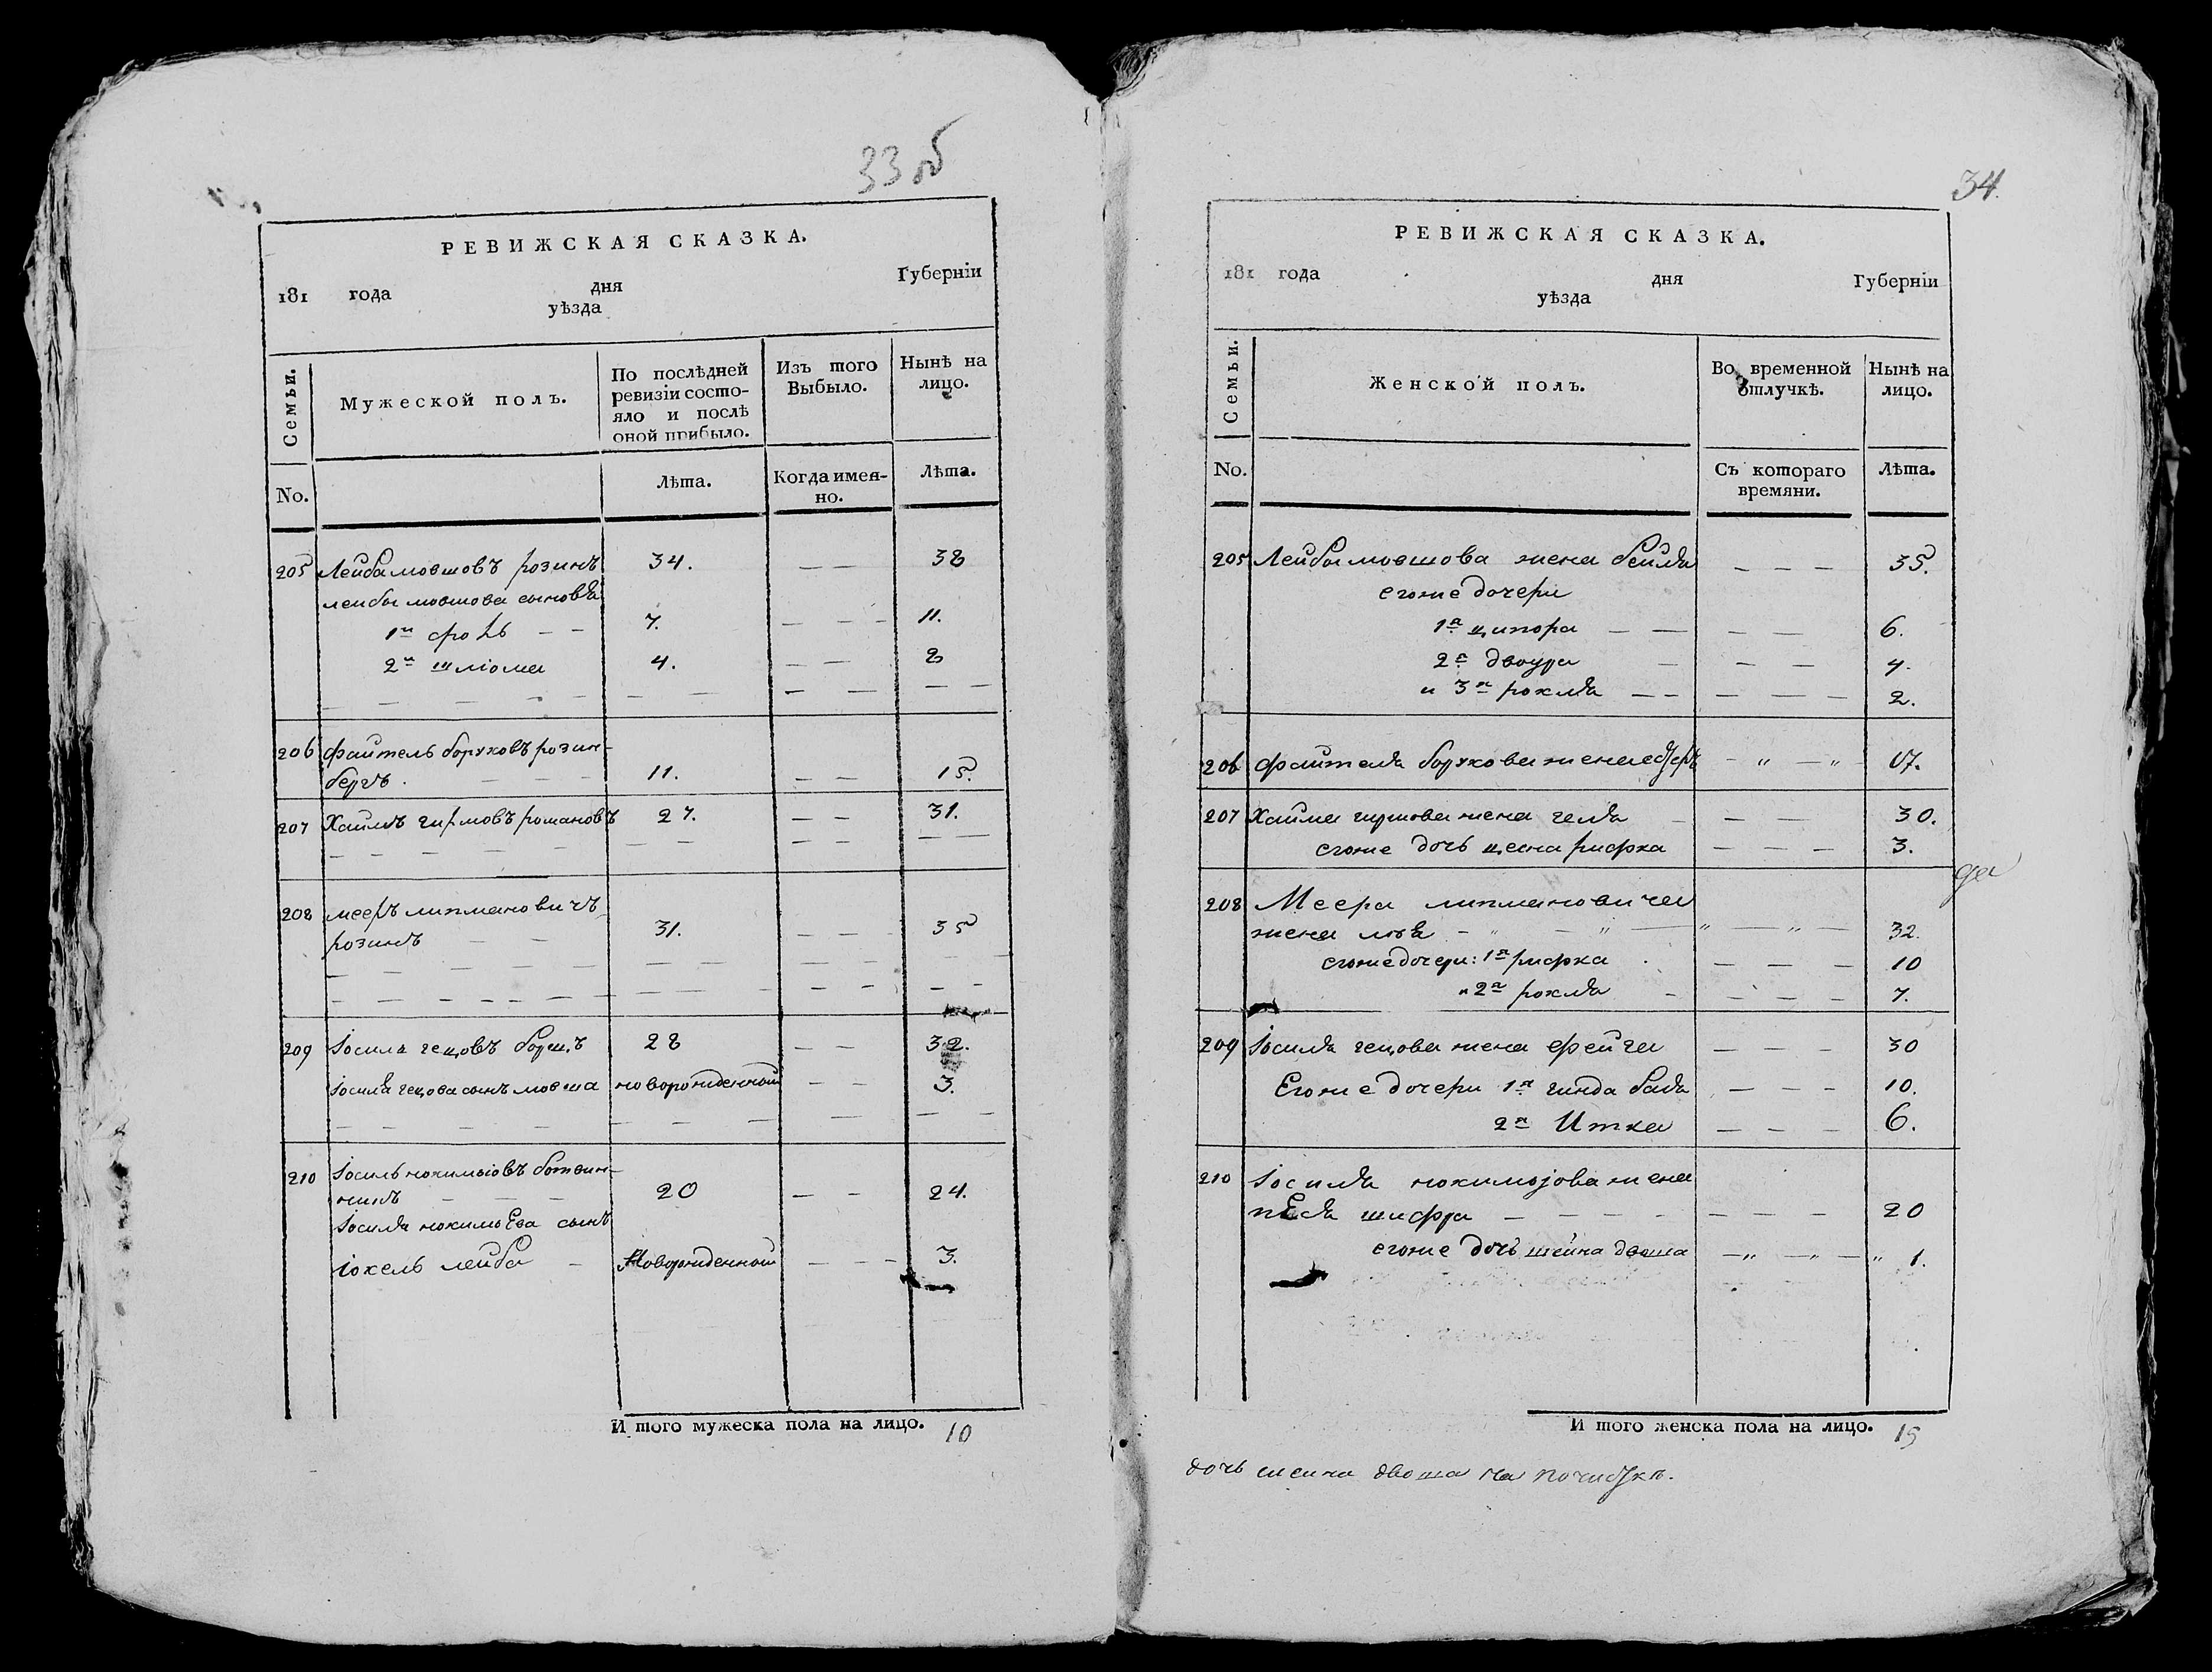 33 об
РЕВИЖСКАЯ СКАЗКА.
181 года дня Губерніи
уѣзда
Семьи.
Мужеской полъ.
По послѣдней ревизіи состо-
яло и послѣ
оной прибыло.
Изъ того Выбыло.
Нынѣ на лицо.
No.
Лѣта.
Когда имен-
но.
Лѣта.
205 Лейба мовшовъ розинъ 34. — — 38
лейбы мовшова сыновья
1й 7. — — — 11.
2й шліома 4. — — 8
206 файтель боруховъ розин-
бергъ. — — — 11. — — 15.
207 Хаимъ гиршовъ романовъ 27. — — 31.
208 мееръ липмановичъ
розинъ — — 31. — — — 35
209 Іосиль гецовъ борщъ 28 — — 32.
Іосиля гецова сынъ мовша новорожденной — — 3.
210 Іосиль нохимьіовъ ботвин-
никъ — — — 20 — — 24.
Іосиля нохимьева сынъ
іохель лейба — Новорожденной — — — 3.
И того мужеска пола на лицо. 10
34.
РЕВИЖСКАЯ СКАЗКА.
181 года дня Губерніи
уѣзда
Семьи.
Женской полъ.
Во временной отлучкѣ.
Нынѣ на лицо.
No.
Съ котораго времяни.
Лѣта.
205 Лейбы мовшова жена бейля — — — 35.
егоже дочери
1я ципора — — — — 6.
2я двоура — — — 4.
и 3я рохля — — — — — 2.
206 файтеля борухова жена — „ — „ 17.
207 Хаима гиршова жена геля — — — 30.
егоже дочь цесна рифка — — — 3.
да
208 Меера липмановича
жена — „ — „ — „ — „ — 32.
егоже дочери: 1я рифка — — — 10
и 2я рохля — — — — — 7.
209 Іосиля гецова жена фейга — — — 30
Егоже дочери 1я гинда бася — — — 10.
2я Итка — — — 6.
210 Іосиля нохимьіова жена
песя шифра — — — — — — — 20
егоже дочь шейна двоша — „ — „ — „ 1.
И того женска пола на лицо. 15
дочь шейна двоша на почистке.